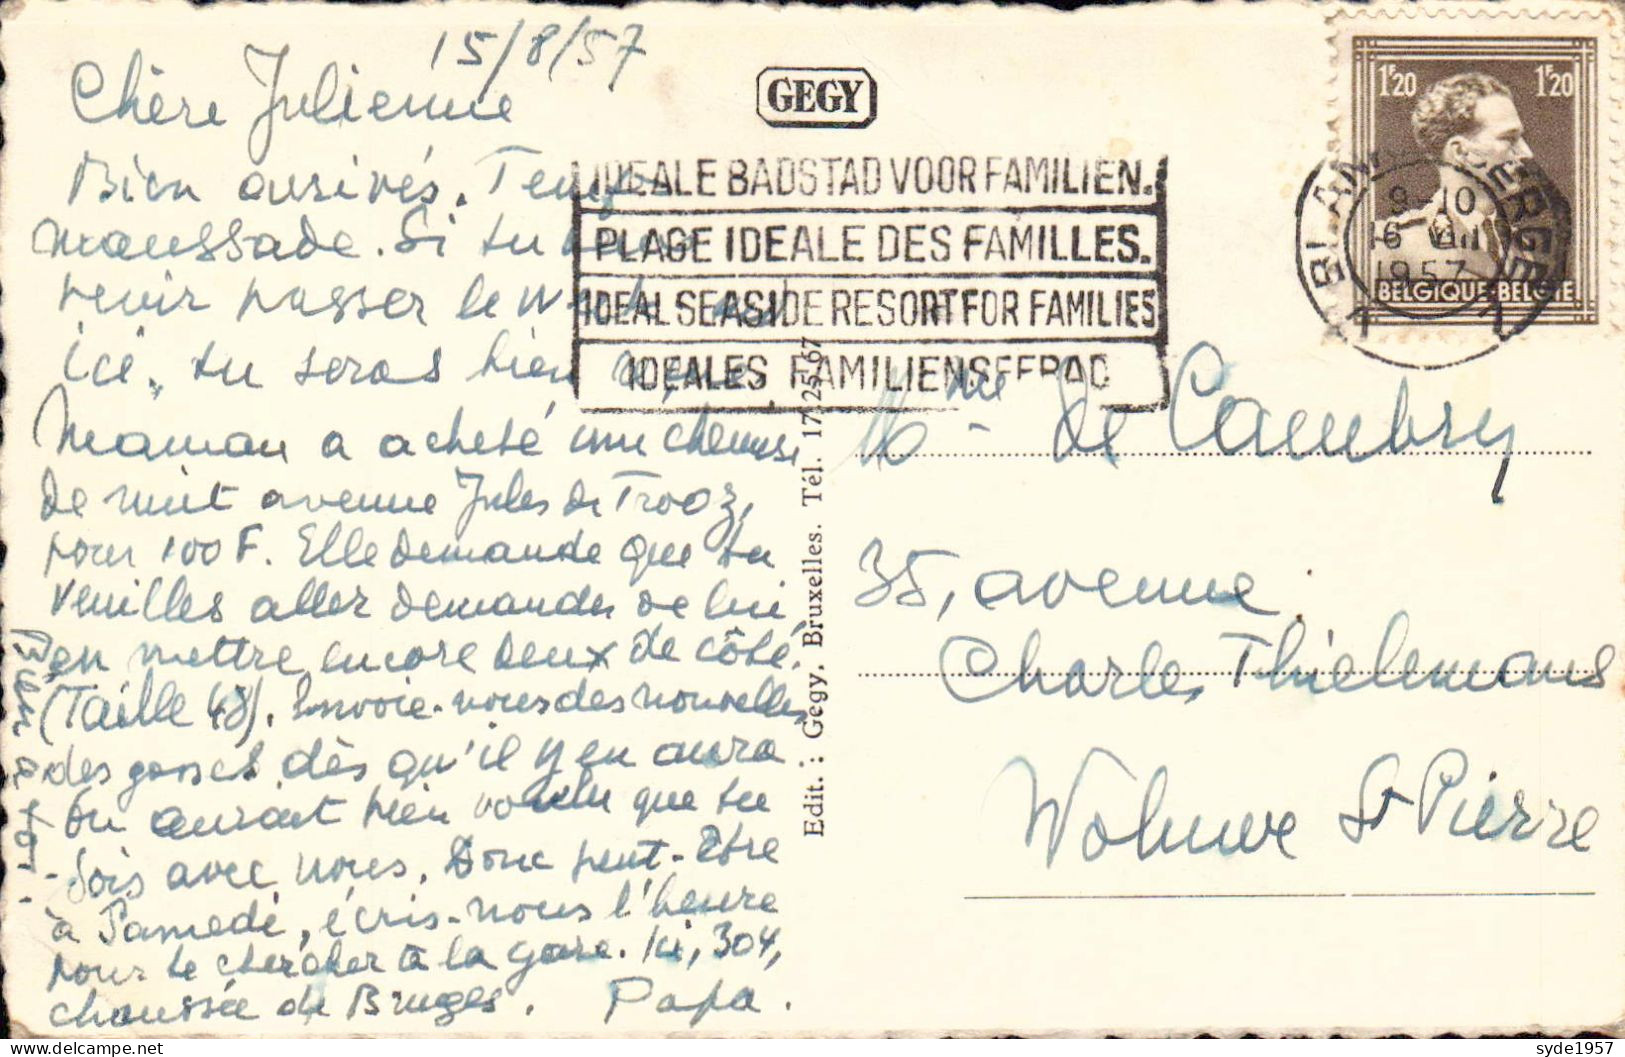 15/8/57
Chère Julienne
Bien arrivés. Temps
maussade. Si tu veux
venir passer le week-end
ici, tu seras bien
Maman a acheté une chemise
de nuit avenue Jules de Trooz,
pour 100 F. Elle demande que tu
veuilles aller demander de lui
en mettre encore deux de côté.
(Taille 48). Envoie-nous des nouvelles
des gosses dès qu'il y en aura.
On aurait bien voulu que tu
sois avec nous. Donc peut-être
à Samedi, écris-nous l'heure
pour te chercher à la gare. Ici, 304,
chaussée de Bruges. Papa.
Bien à toi.
GEGY
IDEALE BADSTAD VOOR FAMILIEN.
PLAGE IDEALE DES FAMILLES.
IDEAL SEASIDE RESORT FOR FAMILIES
IDEALES FAMILIENSEEBAD
Edit.: Gegy. Bruxelles. Tél. 17.25.67
1F20 1F20
BELGIQUE-BELGIE
BLANKENBERGE
9-10
16 VIII
1957
Mme de Cambry
35, avenue
Charles Thielemans
Woluwe St Pierre
syde1957